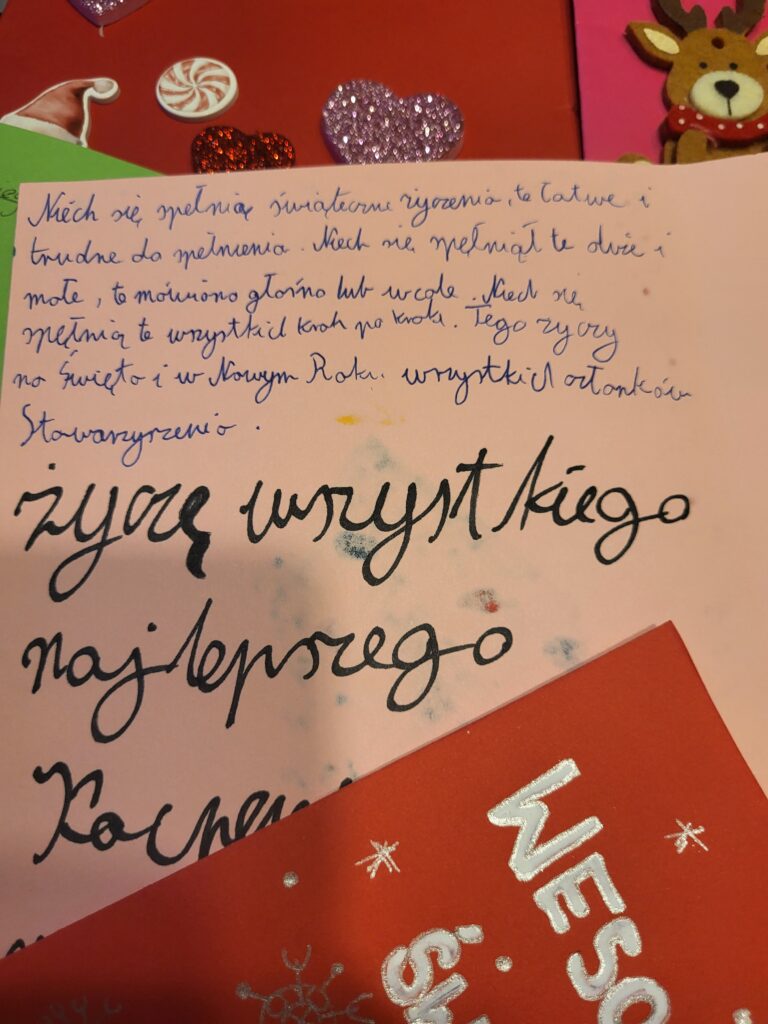 Niech się spełnią świąteczne życzenia, te łatwe i
trudne do spełnienia. Niech się spełniął te duże i
małe, te mówiono głośno lub wcale. Niech się
spełnią te wszystkich krok po kroku. Tego życzy
na Święta i w Nowym Roku. wszystkich członków
Stowarzyszenia.
życzę wszystkiego
najlepszego
WESO
ŚW